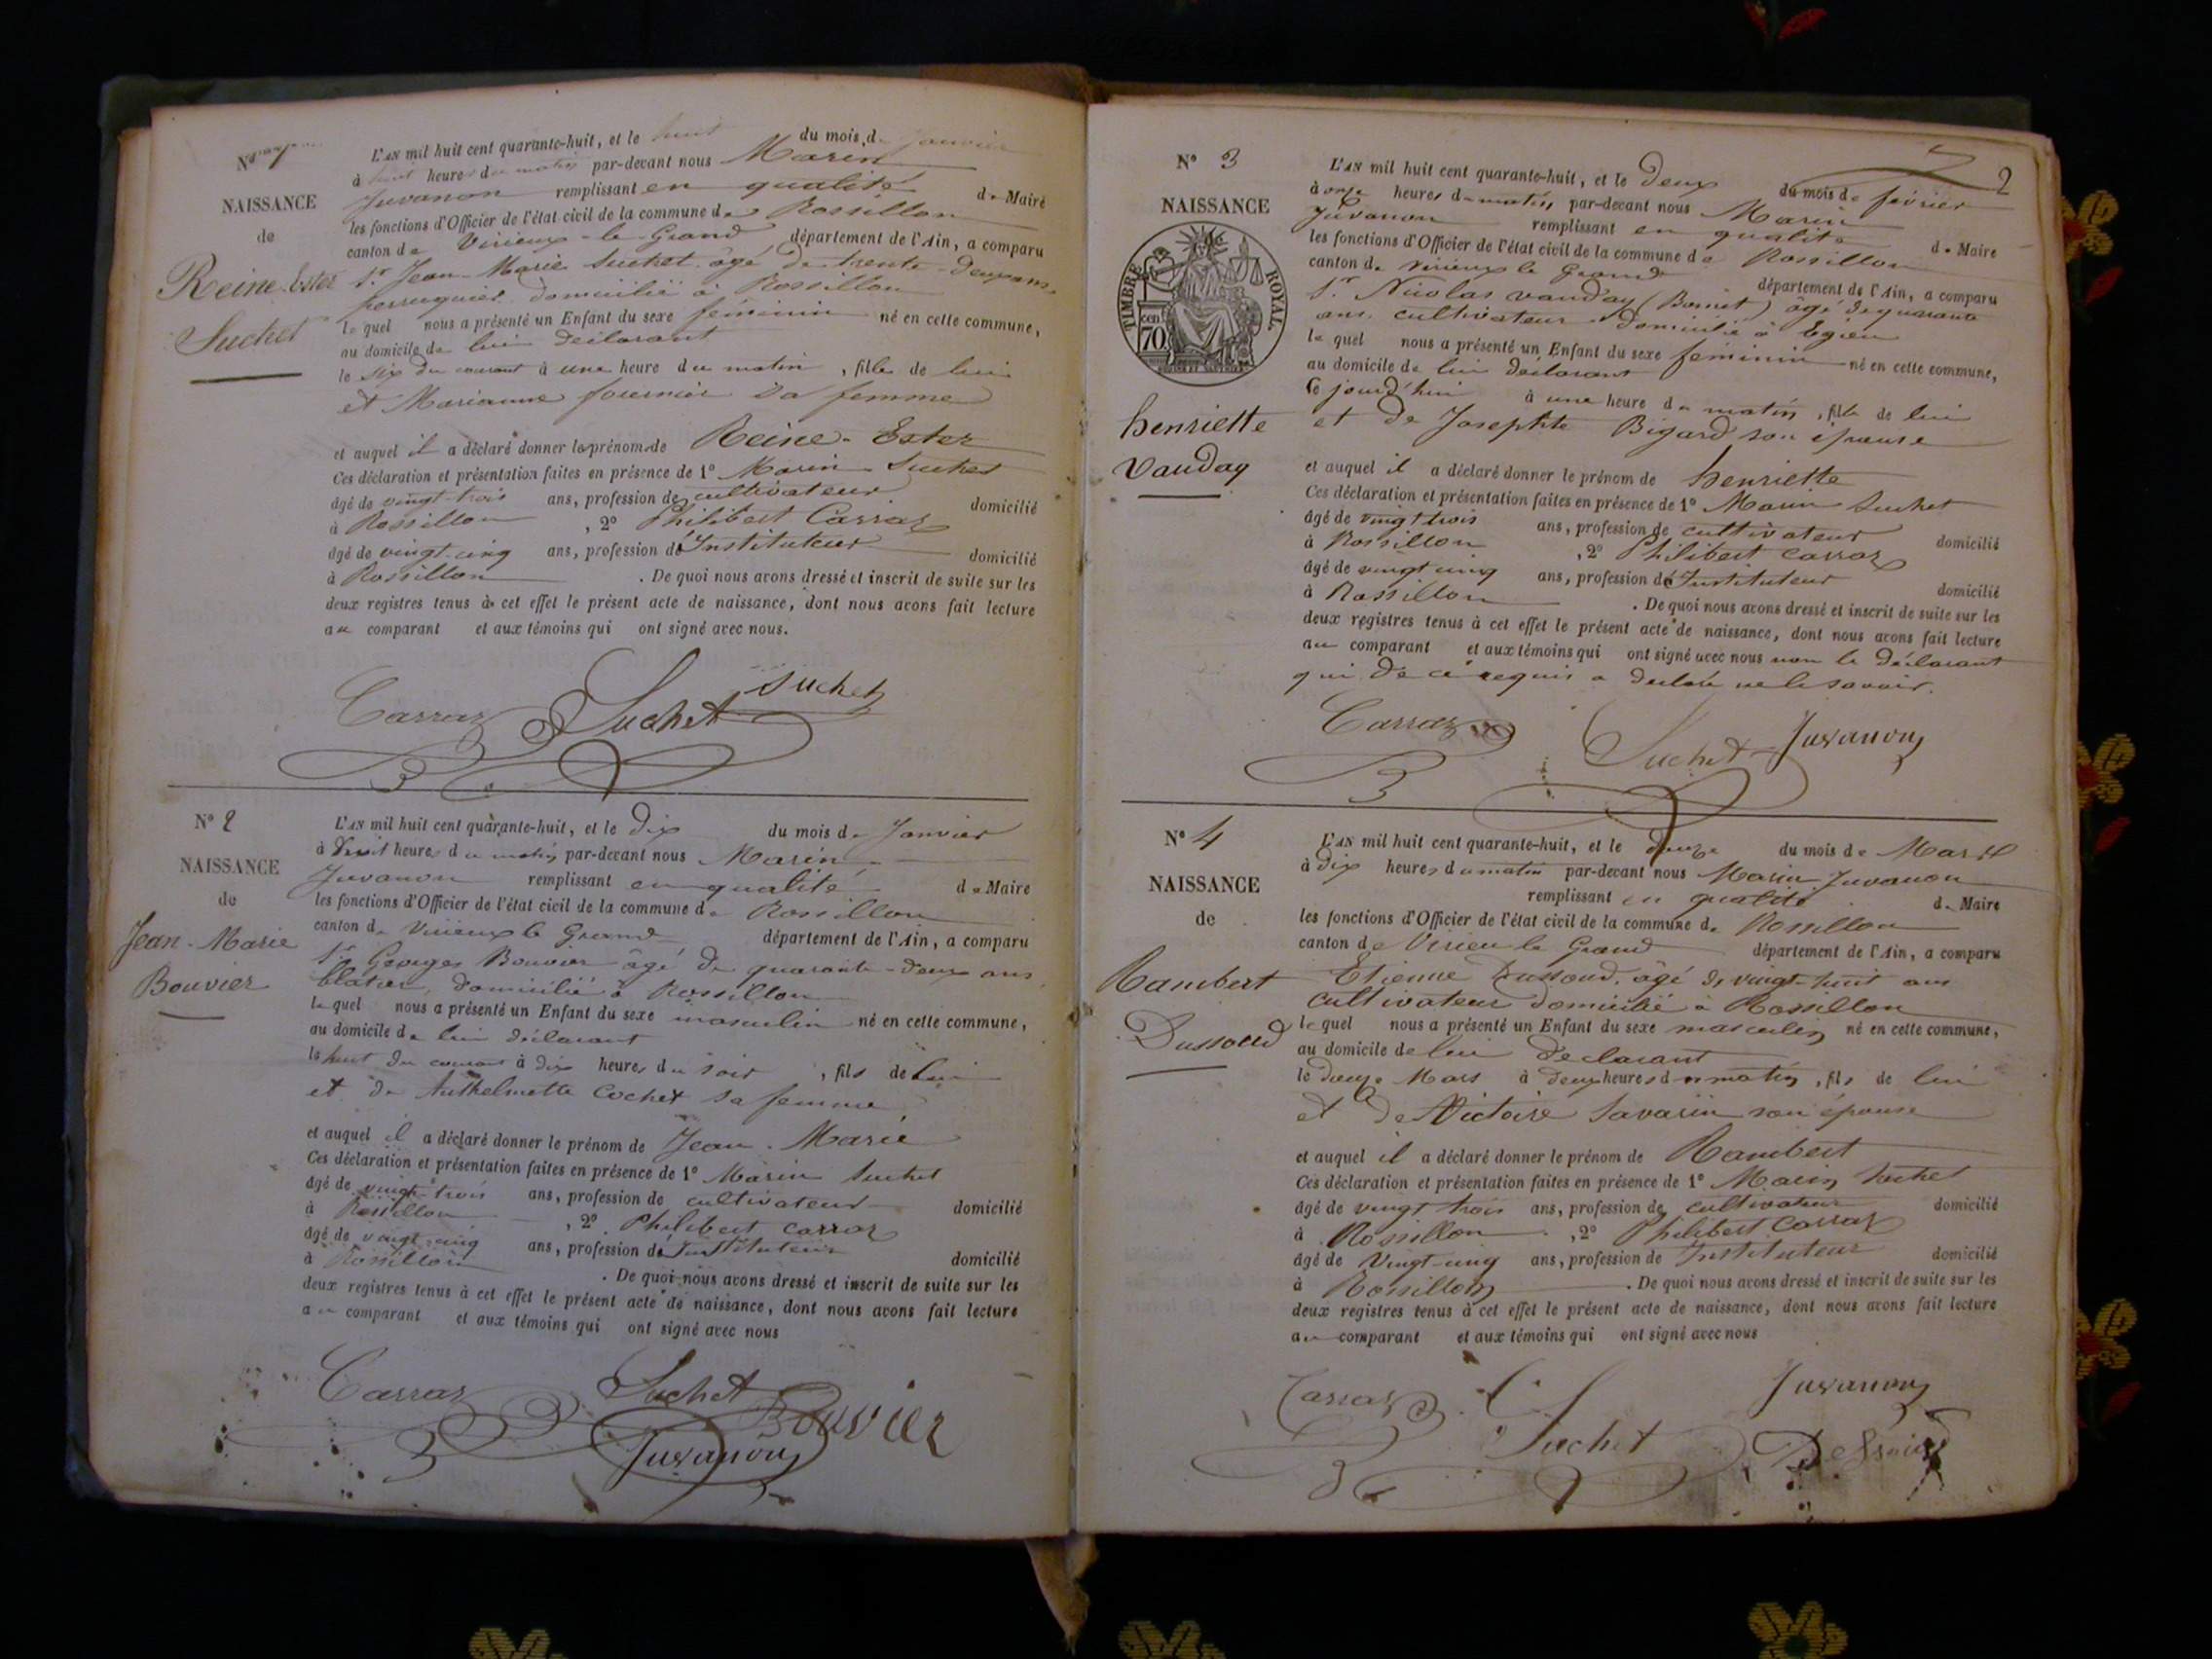 N° 1
NAISSANCE
de
Reine-Ester
Suchet
L'AN mil huit cent quarante-huit, et le huit du mois de Janvier
à huit heures du matin par-devant nous Marin
Juvanon remplissant en qualité de Maire
les fonctions d'Officier de l'état civil de la commune de Rossillon
canton de Virieux-le-Grand département de l'Ain, a comparu
Sr Jean-Marie Suchet âgé de trente-deux ans
perruquier domicilié à Rossillon
lequel nous a présenté un Enfant du sexe féminin né en cette commune,
au domicile de lui déclarant
le six du courant à une heure du matin, fille de lui
et Marianne fournier sa femme
et auquel il a déclaré donner les prénoms de Reine-Ester
Ces déclaration et présentation faites en présence de 1° Marin Suchet
âgé de vingt-trois ans, profession de cultivateur domicilié
à Rossillon, 2° Philibert Carraz
âgé de vingt-cinq ans, profession d'Instituteur domicilié
à Rossillon. De quoi nous avons dressé et inscrit de suite sur les
deux registres tenus à cet effet le présent acte de naissance, dont nous avons fait lecture
au comparant et aux témoins qui ont signé avec nous.
Carraz Suchet Suchet
N° 2
NAISSANCE
de
Jean-Marie
Bouvier
L'AN mil huit cent quarante-huit, et le dix du mois de Janvier
à huit heures du matin par-devant nous Marin
Juvanon remplissant en qualité de Maire
les fonctions d'Officier de l'état civil de la commune de Rossillon
canton de Virieux le Grand département de l'Ain, a comparu
Sr Georges Bouvier âgé de quarante-deux ans
blatier, domicilié à Rossillon
lequel nous a présenté un Enfant du sexe masculin né en cette commune,
au domicile de lui déclarant
le huit du courant à dix heures du soir, fils de lui
et de Anthelmette Cochet sa femme
et auquel il a déclaré donner le prénom de Jean-Marie
Ces déclaration et présentation faites en présence de 1° Marin Suchet
âgé de vingt-trois ans, profession de cultivateur domicilié
à Rossillon, 2° Philibert Carraz
âgé de vingt-cinq ans, profession d'Instituteur domicilié
à Rossillon. De quoi nous avons dressé et inscrit de suite sur les
deux registres tenus à cet effet le présent acte de naissance, dont nous avons fait lecture
au comparant et aux témoins qui ont signé avec nous
Carraz Suchet Bouvier
Juvanon
2
N° 3
NAISSANCE
de
TIMBRE ROYAL
70 cent
henriette
Vauday
L'AN mil huit cent quarante-huit, et le deux du mois de février
à onze heures du matin, par-devant nous Marin
Juvanon remplissant en qualité de Maire
les fonctions d'Officier de l'état civil de la commune de Rossillon
canton de Virieux le Grand département de l'Ain, a comparu
Sr Nicolas Vauday (Bonnet) âgé de quarante
ans, cultivateur domicilié à Egieu
lequel nous a présenté un Enfant du sexe féminin né en cette commune,
au domicile de lui déclarant
Ce jourd'hui à une heure du matin, fille de lui
et de Josephte Bigard son épouse
et auquel il a déclaré donner le prénom de henriette
Ces déclaration et présentation faites en présence de 1° Marin Suchet
âgé de vingt trois ans, profession de cultivateur domicilié
à Rossillon, 2° Philibert Carraz
âgé de vingt cinq ans, profession d'Instituteur domicilié
à Rossillon. De quoi nous avons dressé et inscrit de suite sur les
deux registres tenus à cet effet le présent acte de naissance, dont nous avons fait lecture
au comparant et aux témoins qui ont signé avec nous non le déclarant
qui de ce requis a déclaré ne le savoir.
Carraz Suchet Juvanon
N° 4
NAISSANCE
de
Rambert
Dussoud
L'AN mil huit cent quarante-huit, et le douze du mois de Mars
à dix heures du matin par-devant nous Marin Juvanon
remplissant en qualité de Maire
les fonctions d'Officier de l'état civil de la commune de Rossillon
canton de Virieu le Grand département de l'Ain, a comparu
Etienne Dussoud, âgé de vingt-huit ans
cultivateur domicilié à Rossillon
lequel nous a présenté un Enfant du sexe masculin né en cette commune,
au domicile de lui déclarant
le douze Mars à deux heures du matin, fils de lui
et de Victoire Savarin son épouse
et auquel il a déclaré donner le prénom de Rambert
Ces déclaration et présentation faites en présence de 1° Marin Suchet
âgé de vingt trois ans, profession de cultivateur domicilié
à Rossillon, 2° Philibert Carraz
âgé de Vingt-cinq ans, profession de Instituteur domicilié
à Rossillon. De quoi nous avons dressé et inscrit de suite sur les
deux registres tenus à cet effet le présent acte de naissance, dont nous avons fait lecture
au comparant et aux témoins qui ont signé avec nous
Carraz Suchet Juvanon